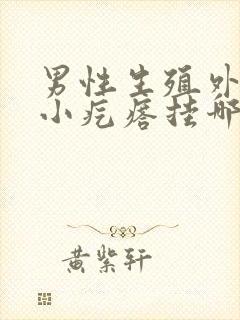 男性生殖外
小疙瘩挂哪
黄紫轩